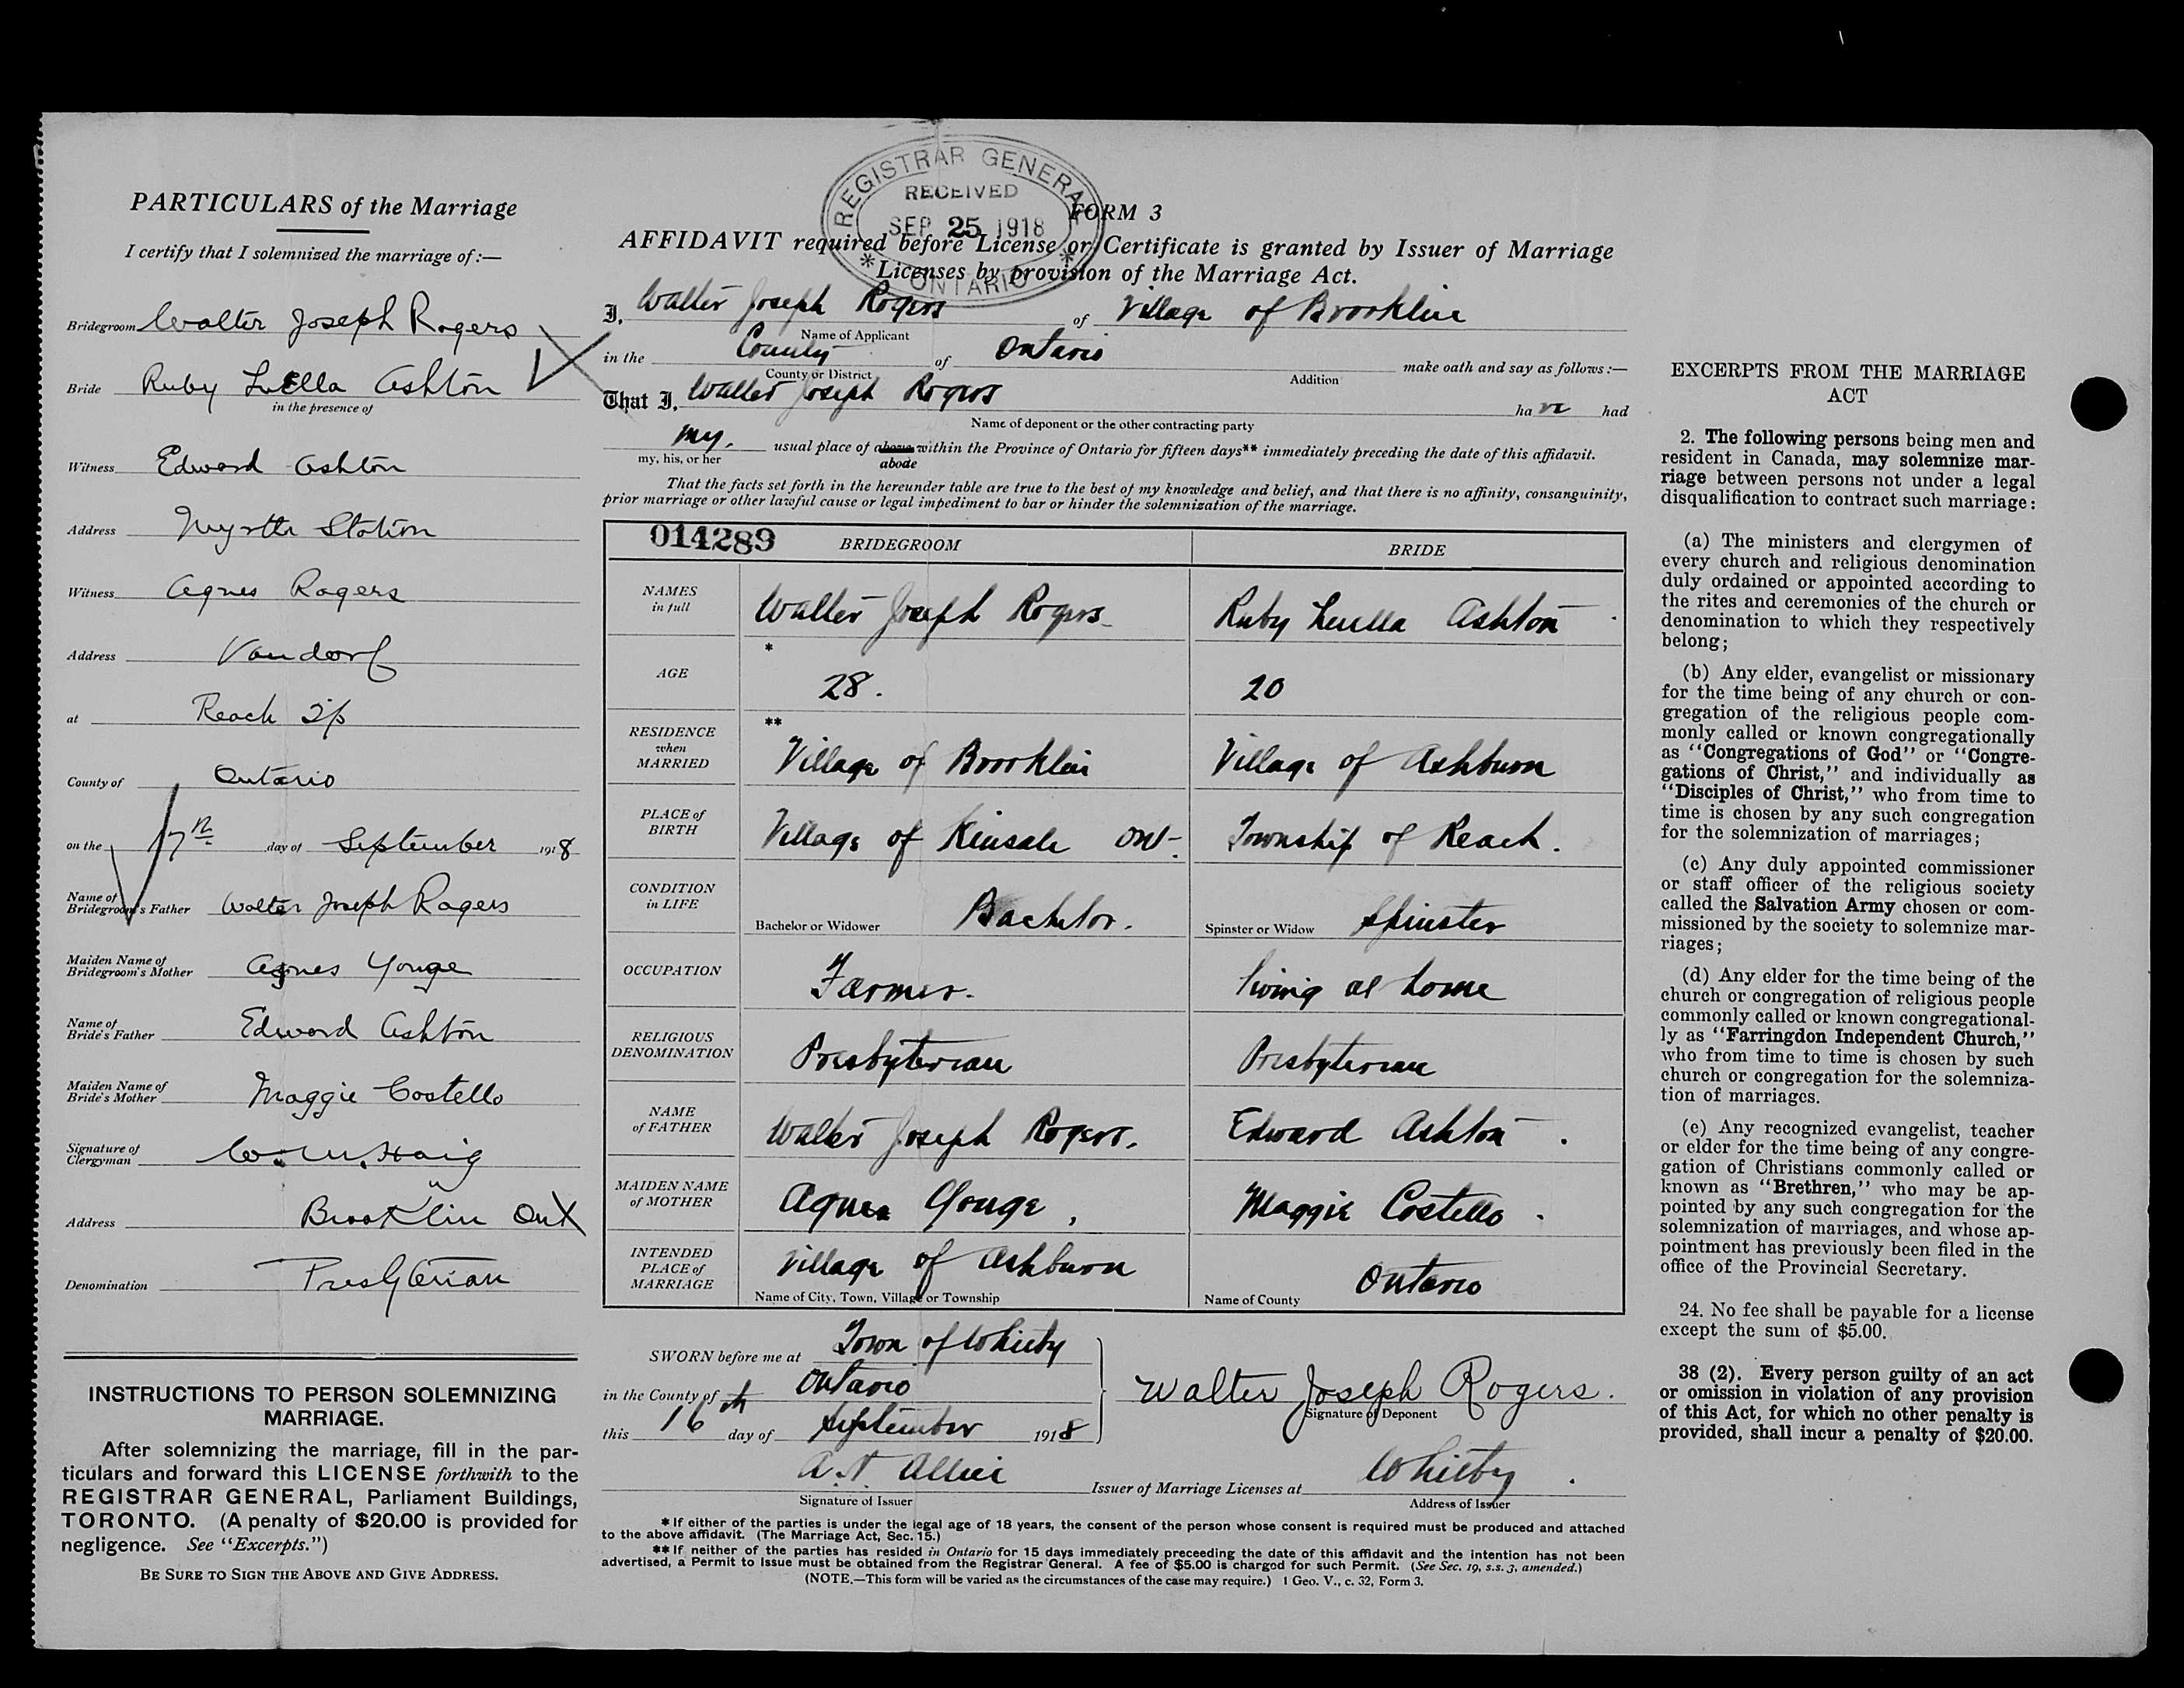 REGISTRAR GENERAL
RECEIVED
SEP 25 1918
* ONTARIO *
PARTICULARS of the Marriage
I certify that I solemnized the marriage of :—
Bridegroom Walter Joseph Rogers
Bride Ruby LuElla Ashton
in the presence of
Witness Edward Ashton
Address Myrtle Station
Witness Agnes Rogers
Address Vandorf
at Reach T/p
County of Ontario
on the 17th day of September 1918
Name of Bridegroom's Father Walter Joseph Rogers
Maiden Name of Bridegroom's Mother Agnes Yonge
Name of Bride's Father Edward Ashton
Maiden Name of Bride's Mother Maggie Costello
Signature of Clergyman W. M. Haig
Address Brooklin Ont
Denomination Presbyterian
INSTRUCTIONS TO PERSON SOLEMNIZING
MARRIAGE.
After solemnizing the marriage, fill in the par-
ticulars and forward this LICENSE forthwith to the
REGISTRAR GENERAL, Parliament Buildings,
TORONTO. (A penalty of $20.00 is provided for
negligence. See "Excerpts.")
BE SURE TO SIGN THE ABOVE AND GIVE ADDRESS.
FORM 3
AFFIDAVIT required before License or Certificate is granted by Issuer of Marriage
Licenses by provision of the Marriage Act.
I, Walter Joseph Rogers of Village of Brooklin
Name of Applicant
in the County of Ontario make oath and say as follows :—
County or District Addition
That I, Walter Joseph Rogers have had
Name of deponent or the other contracting party
my. usual place of above within the Province of Ontario for fifteen days** immediately preceding the date of this affidavit.
my, his, or her abode
That the facts set forth in the hereunder table are true to the best of my knowledge and belief, and that there is no affinity, consanguinity,
prior marriage or other lawful cause or legal impediment to bar or hinder the solemnization of the marriage.
014289 BRIDEGROOM BRIDE
NAMES in full Walter Joseph Rogers Ruby Luella Ashton
AGE * 28. 20
RESIDENCE when MARRIED ** Village of Brooklin Village of Ashburn
PLACE of BIRTH Village of Kinsale Ont. Township of Reach.
CONDITION in LIFE Bachelor or Widower Bachelor. Spinster or Widow Spinster
OCCUPATION Farmer. living at home
RELIGIOUS DENOMINATION Presbyterian Presbyterian
NAME of FATHER Walter Joseph Rogers. Edward Ashton.
MAIDEN NAME of MOTHER Agnes Yonge, Maggie Costello.
INTENDED PLACE of MARRIAGE Village of Ashburn Ontario
Name of City, Town, Village or Township Name of County
SWORN before me at Town of Whitby
in the County of Ontario
this 16th day of September 1918
Walter Joseph Rogers.
Signature of Deponent
A. Allin Issuer of Marriage Licenses at Whitby.
Signature of Issuer Address of Issuer
* If either of the parties is under the legal age of 18 years, the consent of the person whose consent is required must be produced and attached
to the above affidavit. (The Marriage Act, Sec. 15.)
** If neither of the parties has resided in Ontario for 15 days immediately preceeding the date of this affidavit and the intention has not been
advertised, a Permit to Issue must be obtained from the Registrar General. A fee of $5.00 is charged for such Permit. (See Sec. 19, s.s. 3, amended.)
(NOTE.—This form will be varied as the circumstances of the case may require.) 1 Geo. V., c. 32, Form 3.
EXCERPTS FROM THE MARRIAGE
ACT
2. The following persons being men and
resident in Canada, may solemnize mar-
riage between persons not under a legal
disqualification to contract such marriage:
(a) The ministers and clergymen of
every church and religious denomination
duly ordained or appointed according to
the rites and ceremonies of the church or
denomination to which they respectively
belong;
(b) Any elder, evangelist or missionary
for the time being of any church or con-
gregation of the religious people com-
monly called or known congregationally
as "Congregations of God" or "Congre-
gations of Christ," and individually as
"Disciples of Christ," who from time to
time is chosen by any such congregation
for the solemnization of marriages;
(c) Any duly appointed commissioner
or staff officer of the religious society
called the Salvation Army chosen or com-
missioned by the society to solemnize mar-
riages;
(d) Any elder for the time being of the
church or congregation of religious people
commonly called or known congregational-
ly as "Farringdon Independent Church,"
who from time to time is chosen by such
church or congregation for the solemniza-
tion of marriages.
(e) Any recognized evangelist, teacher
or elder for the time being of any congre-
gation of Christians commonly called or
known as "Brethren," who may be ap-
pointed by any such congregation for the
solemnization of marriages, and whose ap-
pointment has previously been filed in the
office of the Provincial Secretary.
24. No fee shall be payable for a license
except the sum of $5.00.
38 (2). Every person guilty of an act
or omission in violation of any provision
of this Act, for which no other penalty is
provided, shall incur a penalty of $20.00.